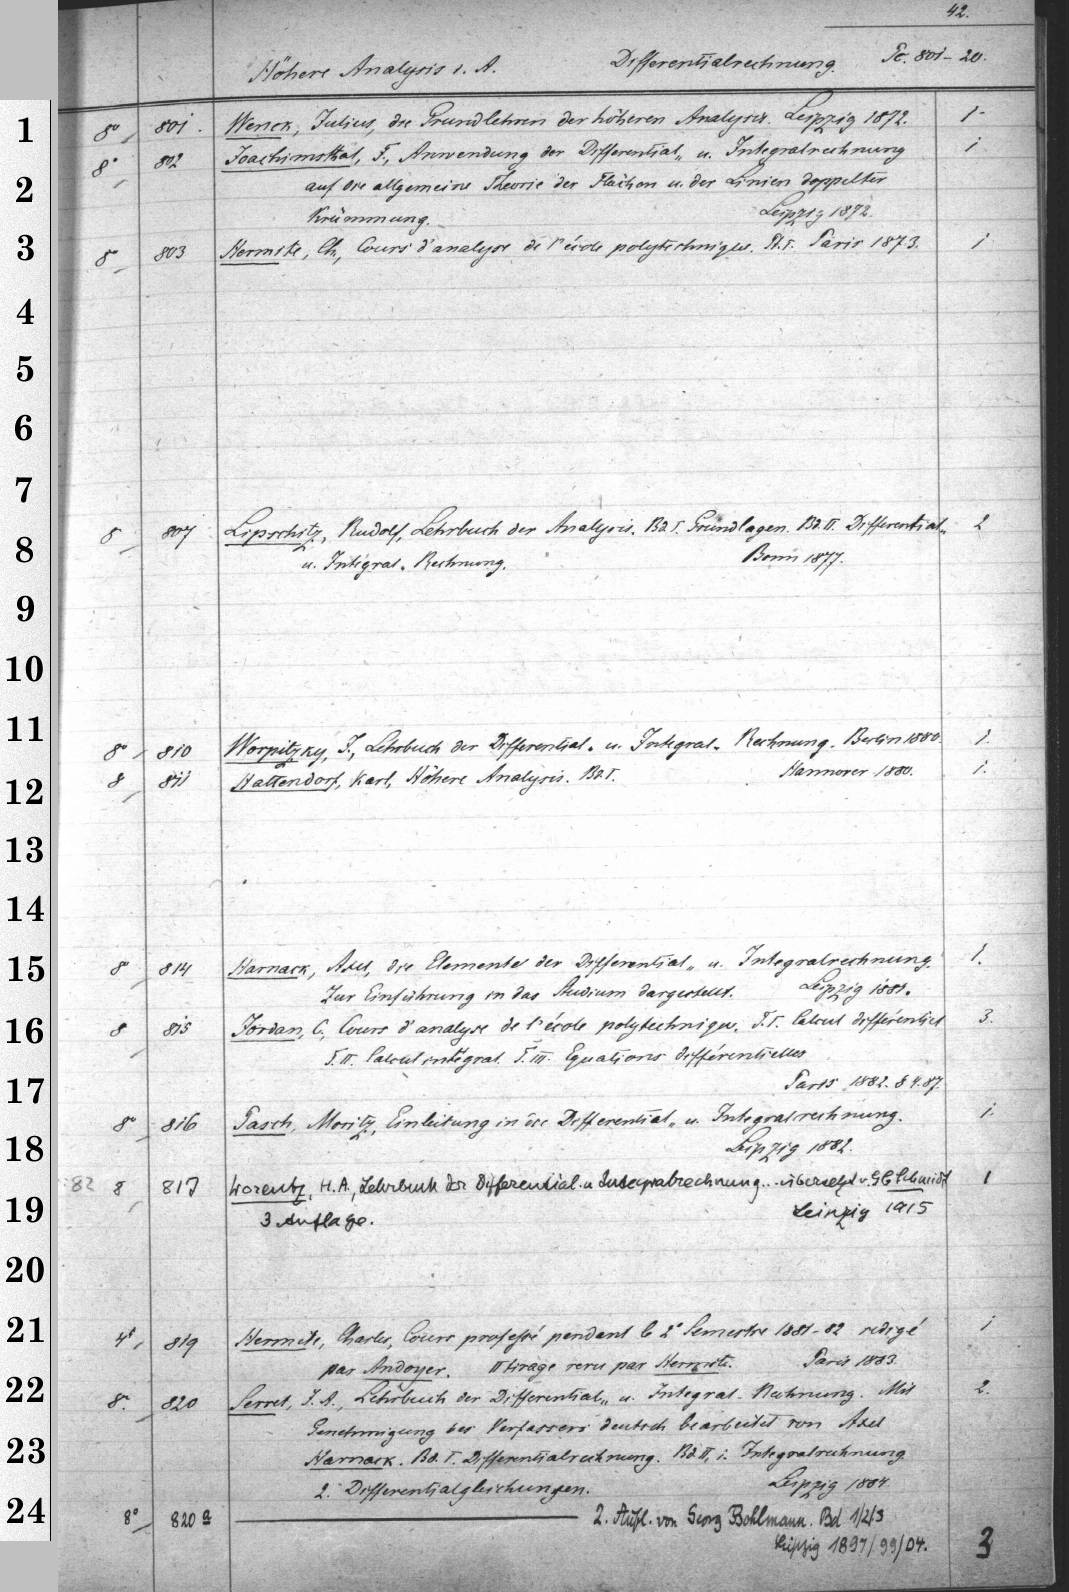 42.
Höhere Analysis i. A. Differentialrechnung. Pc. 801-20.
1 8° 801. Wenck, Julius, die Grundlehren der höheren Analysis. Leipzig 1872. 1
8° 802 Joachimsthal, F., Anwendung der Differential- u. Integralrechnung 1
2 auf die allgemeine Theorie der Flächen u. der Linien doppelter
Krümmung. Leipzig 1872.
3 8° 803 Hermite, Ch., Cours d'analyse de l'école polytechnique. Pt. I. Paris 1873. 1
4
5
6
7
8 807 Lipschitz, Rudolf, Lehrbuch der Analysis. Bd. I. Grundlagen. Bd. II. Differential- 2
8 u. Integral-Rechnung. Bonn 1877.
9
10
11
8° 810 Worpitzky, J., Lehrbuch der Differential- u. Integral-Rechnung. Berlin 1880. 1.
12 8 811 Hattendorf, Karl, Höhere Analysis. Bd. I. Hannover 1880. 1.
13
14
15 8° 814 Harnack, Axel, die Elemente der Differential- u. Integralrechnung. 1.
Zur Einführung in das Studium dargestellt. Leipzig 1881.
16 8 815 Jordan, C., Cours d'analyse de l'école polytechnique. T. I. Calcul différentiel 3.
T. II. Calcul intégral. T. III. Equations différentielles
17 Paris 1882. 84.87.
8° 816 Pasch, Moritz, Einleitung in die Differential- u. Integralrechnung. 1.
18 Leipzig 1882.
82 8 817 Lorentz, H. A., Lehrbuch der Differential- u Integralrechnung.. übersetzt v. G C Schmidt 1
19 3 Auflage. Leipzig 1915
20
21 4°, 819 Hermite, Charles, Cours professé pendant le 2e Semestre 1881-82 rédigé 1
par Andoyer. II tirage revu par Hermite. Paris 1883.
22 8° 820 Serret, J. A., Lehrbuch der Differential- u. Integral-Rechnung. Mit 2.
Genehmigung des Verfassers deutsch bearbeitet von Axel
23 Harnack. Bd. I. Differentialrechnung. Bd. II, 1. Integralrechnung
2. Differentialgleichungen. Leipzig 1884
24 8° 820 a 2. Aufl. von Georg Bohlmann. Bd 1/2/3
Leipzig 1897/99/04. 3